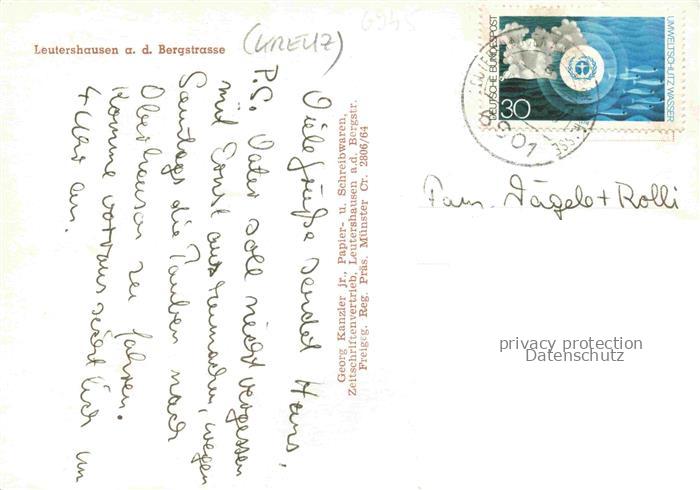 Leutershausen a. d. Bergstrasse
(KREUZ)
6945
Viele Grüße sendet Hans.
P.S. Vater soll nicht vergessen
mit Ernst auszumachen, wegen
Samstags die Tauben nach
Oberhausen zu fahren.
Komme voraussichtlich um
4 Uhr an.
Georg Kanzler jr., Papier- u. Schreibwaren,
Zeitschriftenvertrieb, Leutershausen a.d. Bergstr.
Freigeg. Reg. Präs. Münster Cr. 2806/64
DEUTSCHE BUNDESPOST
30
UMWELTSCHUTZ WASSER
Fam. Nägele + Rolli
privacy protection
Datenschutz